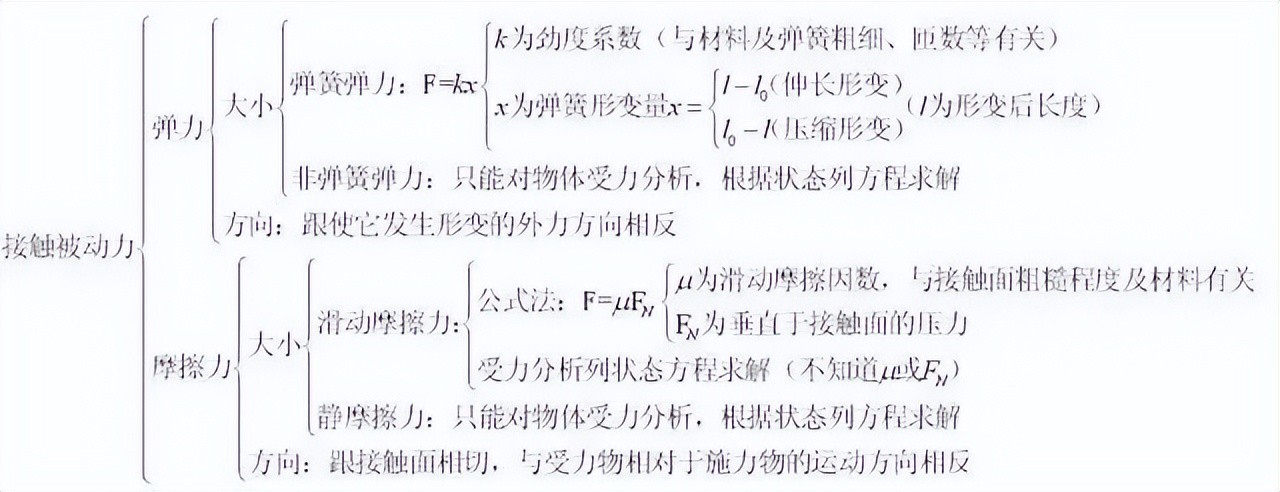 接触被动力
弹力
大小
弹簧弹力：F=kx
k为劲度系数（与材料及弹簧粗细、匝数等有关）
x为弹簧形变量x=
l-l₀(伸长形变)
l₀-l(压缩形变)
(l为形变后长度)
非弹簧弹力：只能对物体受力分析，根据状态列方程求解
方向：跟使它发生形变的外力方向相反
摩擦力
大小
滑动摩擦力：
公式法：F=μF_N
μ为滑动摩擦因数，与接触面粗糙程度及材料有关
F_N为垂直于接触面的压力
受力分析列状态方程求解（不知道μ或F_N）
静摩擦力：只能对物体受力分析，根据状态列方程求解
方向：跟接触面相切，与受力物相对于施力物的运动方向相反